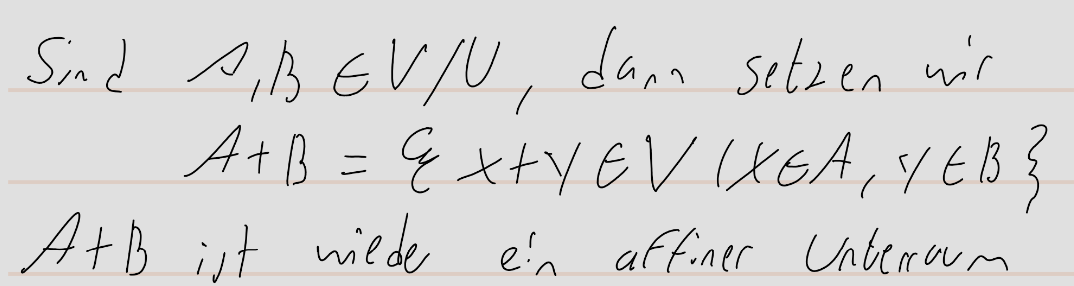 Sind A,B ∈ V/U, dann setzen wir
A+B = { x+y ∈ V | x ∈ A, y ∈ B }
A+B ist wieder ein affiner Unterraum